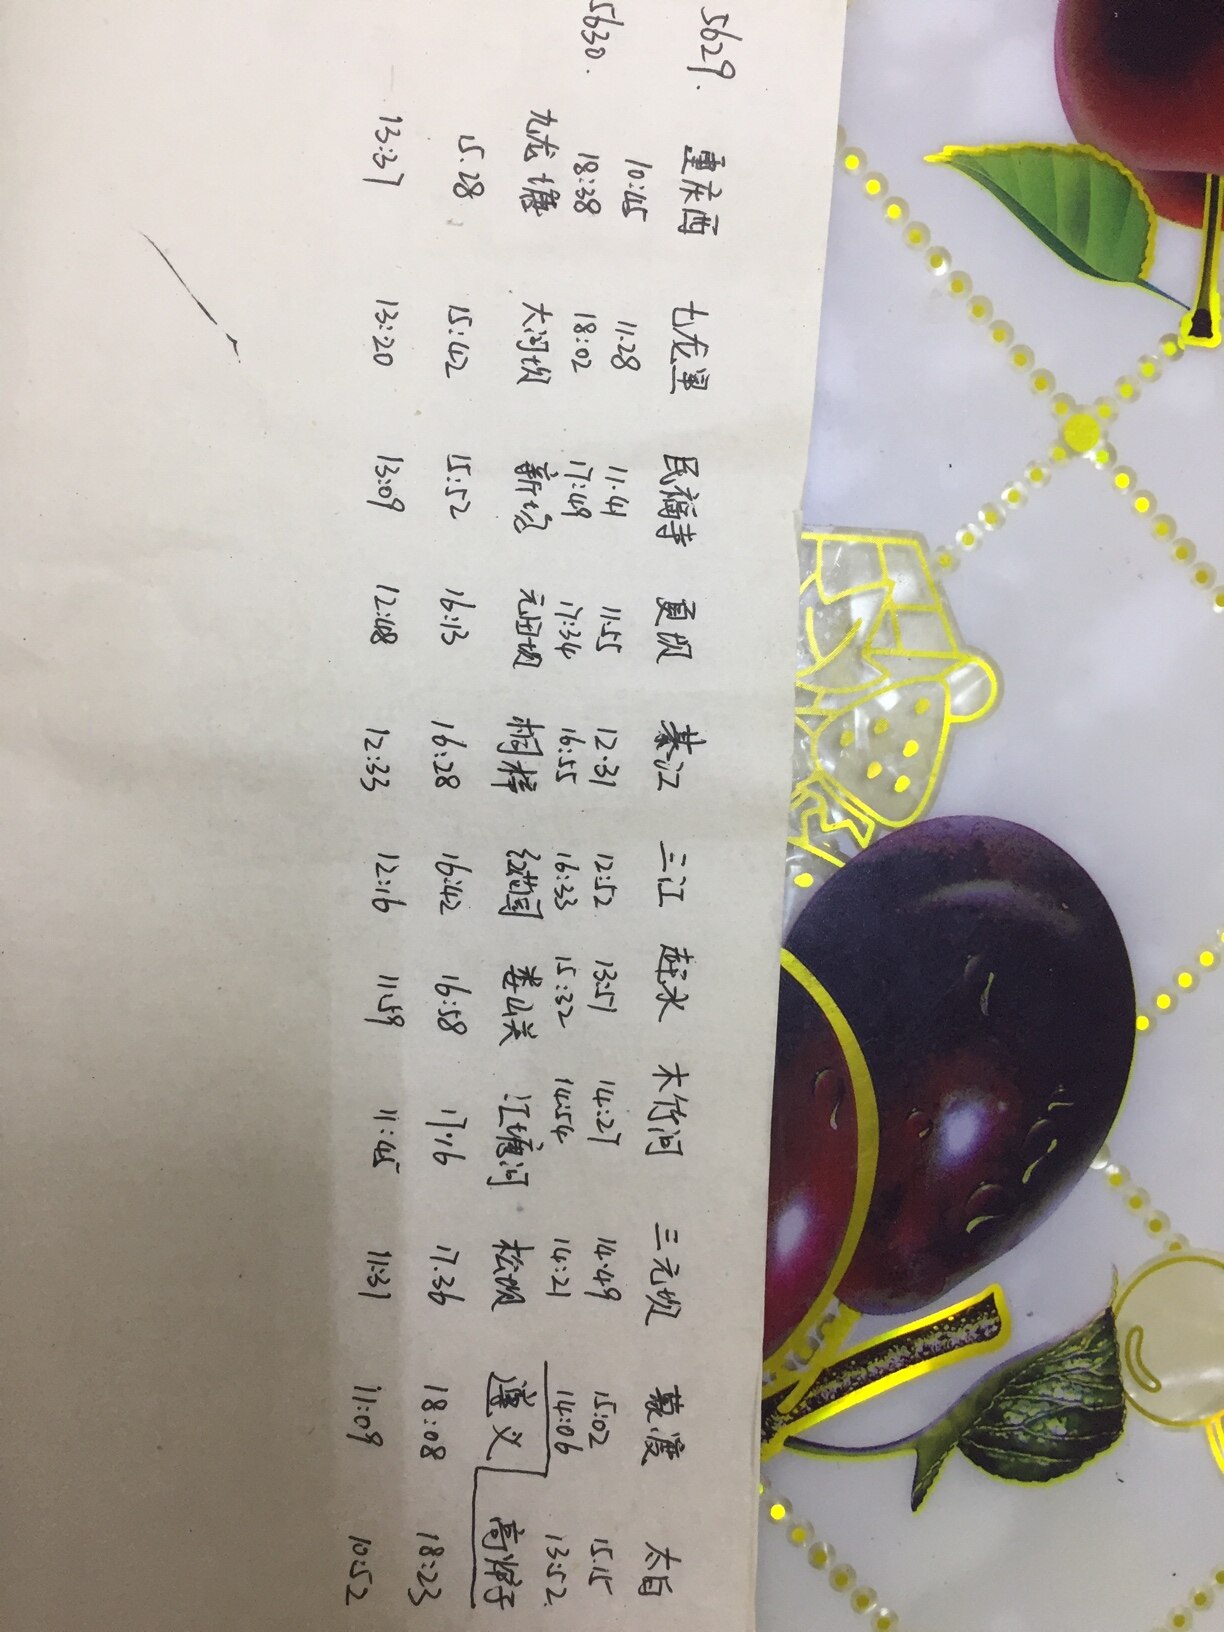 5629. 重庆西 七龙星 民福寺 夏坝 綦江 三江 赶水 木竹河 三元坝 蒙渡 太白
10:45 11:28 11:41 11:55 12:31 12:52 13:51 14:27 14:49 15:02 15:15
5630. 18:38 18:02 17:49 17:34 16:55 16:33 15:32 14:54 14:21 14:06 13:52
九龙塘 大河坝 新场 元田坝 桐梓 红苗园 娄山关 汇塘河 松坝 遵义 高坪子
15:28 15:42 15:52 16:13 16:28 16:42 16:58 17:16 17:36 18:08 18:23
13:37 13:20 13:09 12:48 12:33 12:16 11:59 11:45 11:31 11:09 10:52